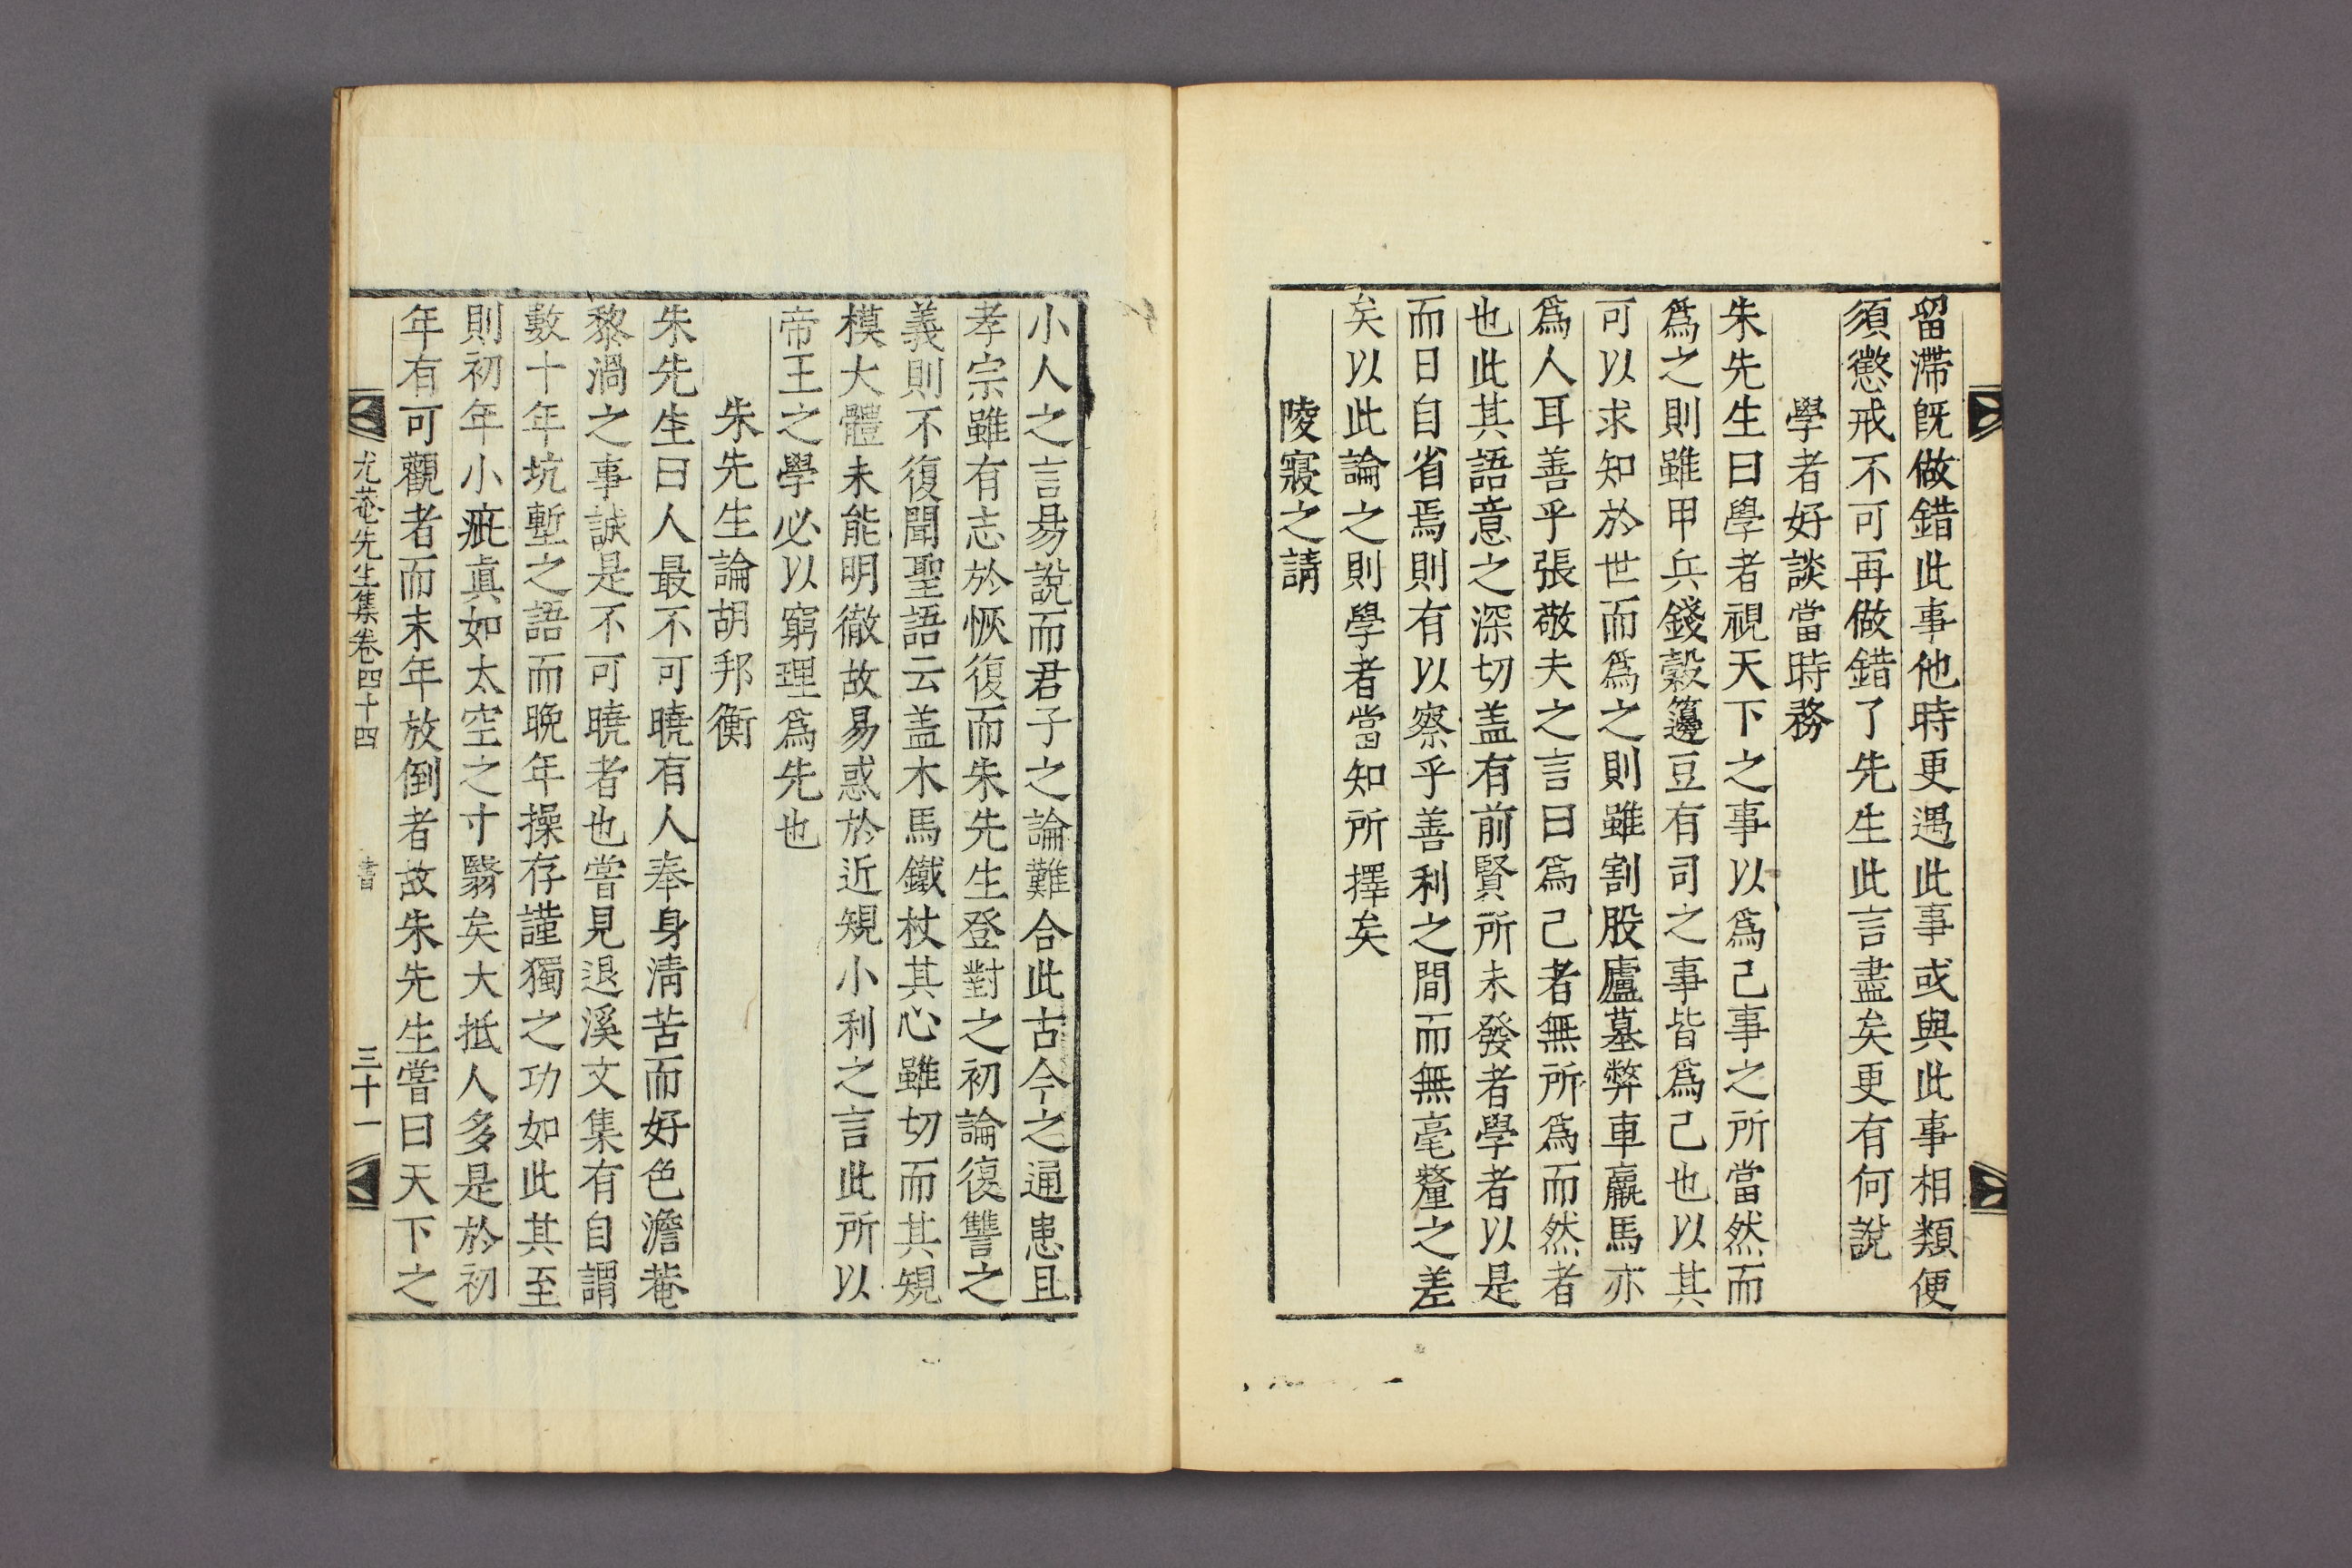 留滯旣做錯此事他時更遇此事或與此事相類便
須懲戒不可再做錯了先生此言盡矣更有何說
學者好談當時務
朱先生曰學者視天下之事以爲己事之所當然而
爲之則雖甲兵錢穀籩豆有司之事皆爲己也以其
可以求知於世而爲之則雖割股廬墓弊車羸馬亦
爲人耳善乎張敬夫之言曰爲己者無所爲而然者
也此其語意之深切盖有前賢所未發者學者以是
而日自省焉則有以察乎善利之間而無毫釐之差
矣以此論之則學者當知所擇矣
陵寢之請
小人之言易說而君子之論難合此古今之通患且
孝宗雖有志於恢復而朱先生登對之初論復讐之
義則不復聞聖語云盖木馬鐵杖其心雖切而其規
模大體未能明徹故易惑於近規小利之言此所以
帝王之學必以窮理爲先也
朱先生論胡邦衡
朱先生曰人最不可曉有人奉身淸苦而好色澹菴
黎渦之事誠是不可曉者也嘗見退溪文集有自謂
數十年坑塹之語而晩年操存謹獨之功如此其至
則初年小疵眞如太空之寸翳矣大抵人多是於初
年有可觀者而末年放倒者故朱先生嘗曰天下之
尤菴先生集卷四十四 書 三十一